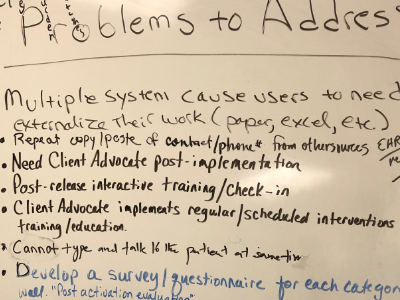 Problems to Address
Multiple system cause users to need
externalize their work (paper, excel, etc.)
• Repeat copy/paste of contact/phone# from othersources EHR
• Need Client Advocate post-implementation
• Post-release interactive training/check-in
• Client Advocate implements regular/scheduled interventions
training/education.
* Cannot type and talk to the patient at same time
• Develop a survey/questionnaire for each categor
"Post activation evaluation"